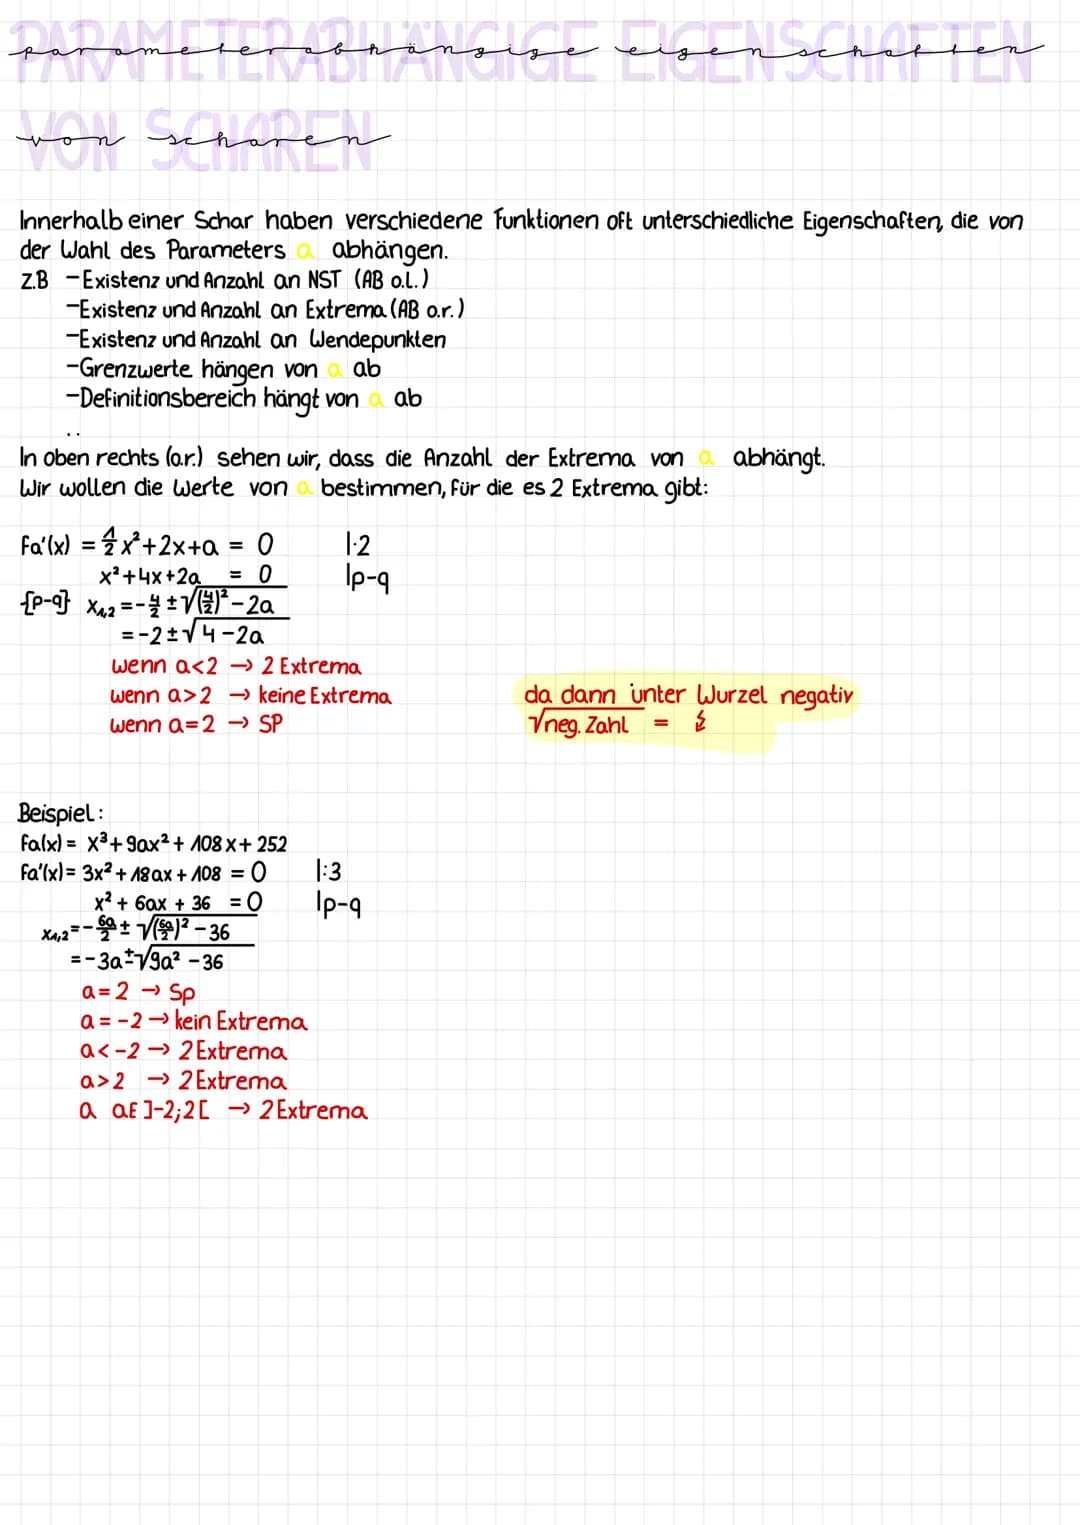 PARAMETERABHÄNGIGE EIGENSCHAFTEN
parameterabhängige eigenschaften
VON SCHAREN
von scharen
Innerhalb einer Schar haben verschiedene Funktionen oft unterschiedliche Eigenschaften, die von
der Wahl des Parameters a abhängen.
z.B -Existenz und Anzahl an NST (AB o.l.)
-Existenz und Anzahl an Extrema (AB o.r.)
-Existenz und Anzahl an Wendepunkten
-Grenzwerte hängen von a ab
-Definitionsbereich hängt von a ab
..
In oben rechts (o.r.) sehen wir, dass die Anzahl der Extrema von a abhängt.
Wir wollen die Werte von a bestimmen, für die es 2 Extrema gibt:
fa'(x) = 1/2 x² + 2x + a = 0 |·2
x² + 4x + 2a = 0 |p-q
{p-q} x₁,₂ = - 4/2 ± √(4/2)² - 2a
= -2 ± √4 - 2a
wenn a<2 → 2 Extrema
wenn a>2 → keine Extrema da dann unter Wurzel negativ
wenn a=2 → SP √neg. Zahl = ↯
Beispiel:
fa(x) = x³ + 9ax² + 108x + 252
fa'(x) = 3x² + 18ax + 108 = 0 |:3
x² + 6ax + 36 = 0 |p-q
x₁,₂ = - 6a/2 ± √(6a/2)² - 36
= -3a ± √9a² - 36
a = 2 → Sp
a = -2 → kein Extrema
a < -2 → 2 Extrema
a > 2 → 2 Extrema
a a∈ ]-2;2[ → 2 Extrema